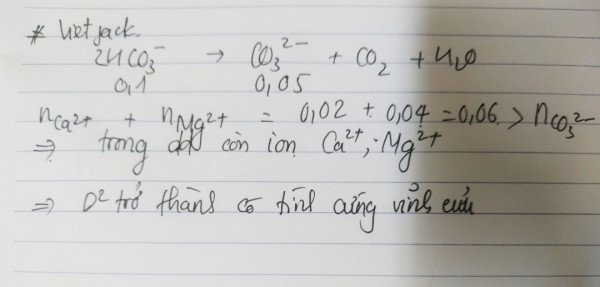 * Vietjack.
2HCO₃⁻ → CO₃²⁻ + CO₂ + H₂O
0,1 0,05
nCa²⁺ + nMg²⁺ = 0,02 + 0,04 = 0,06 > nCO₃²⁻
⇒ trong dd còn ion Ca²⁺, Mg²⁺
⇒ D² trở thành có tính cứng vĩnh cửu